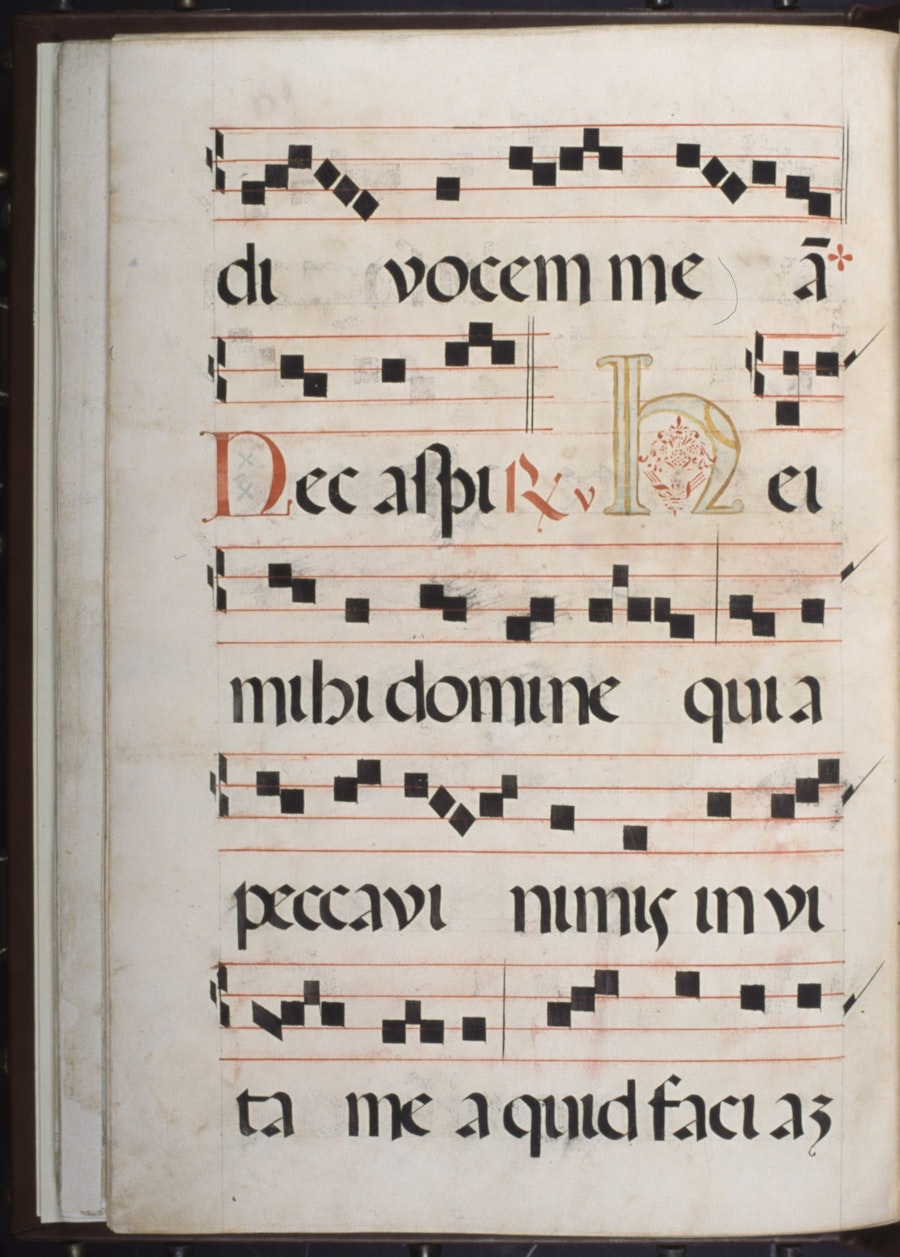 di vocem meā
Nec aspi R v Hei
mihi domine quia
peccavi nimis in vi
ta mea quid faciaz